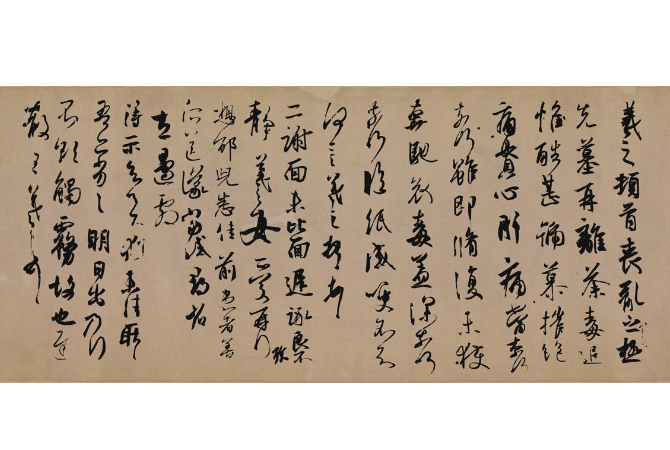 羲之頓首喪亂之極
先墓再離荼毒追
惟酷甚號慕摧絕
痛貫心肝痛當奈何
奈何雖即脩復未獲
奔馳哀毒益深奈何
奈何臨紙感哽不知
何言羲之頓首
二謝面未比面遲詠良不
靜羲之女愛再拜
想邵兒悉佳前患者善
所送議當試尋省
左邊劇
得示知足下猶未佳耿
吾亦劣劣明日出乃行
不欲觸霧故也遲
散王羲之頓首